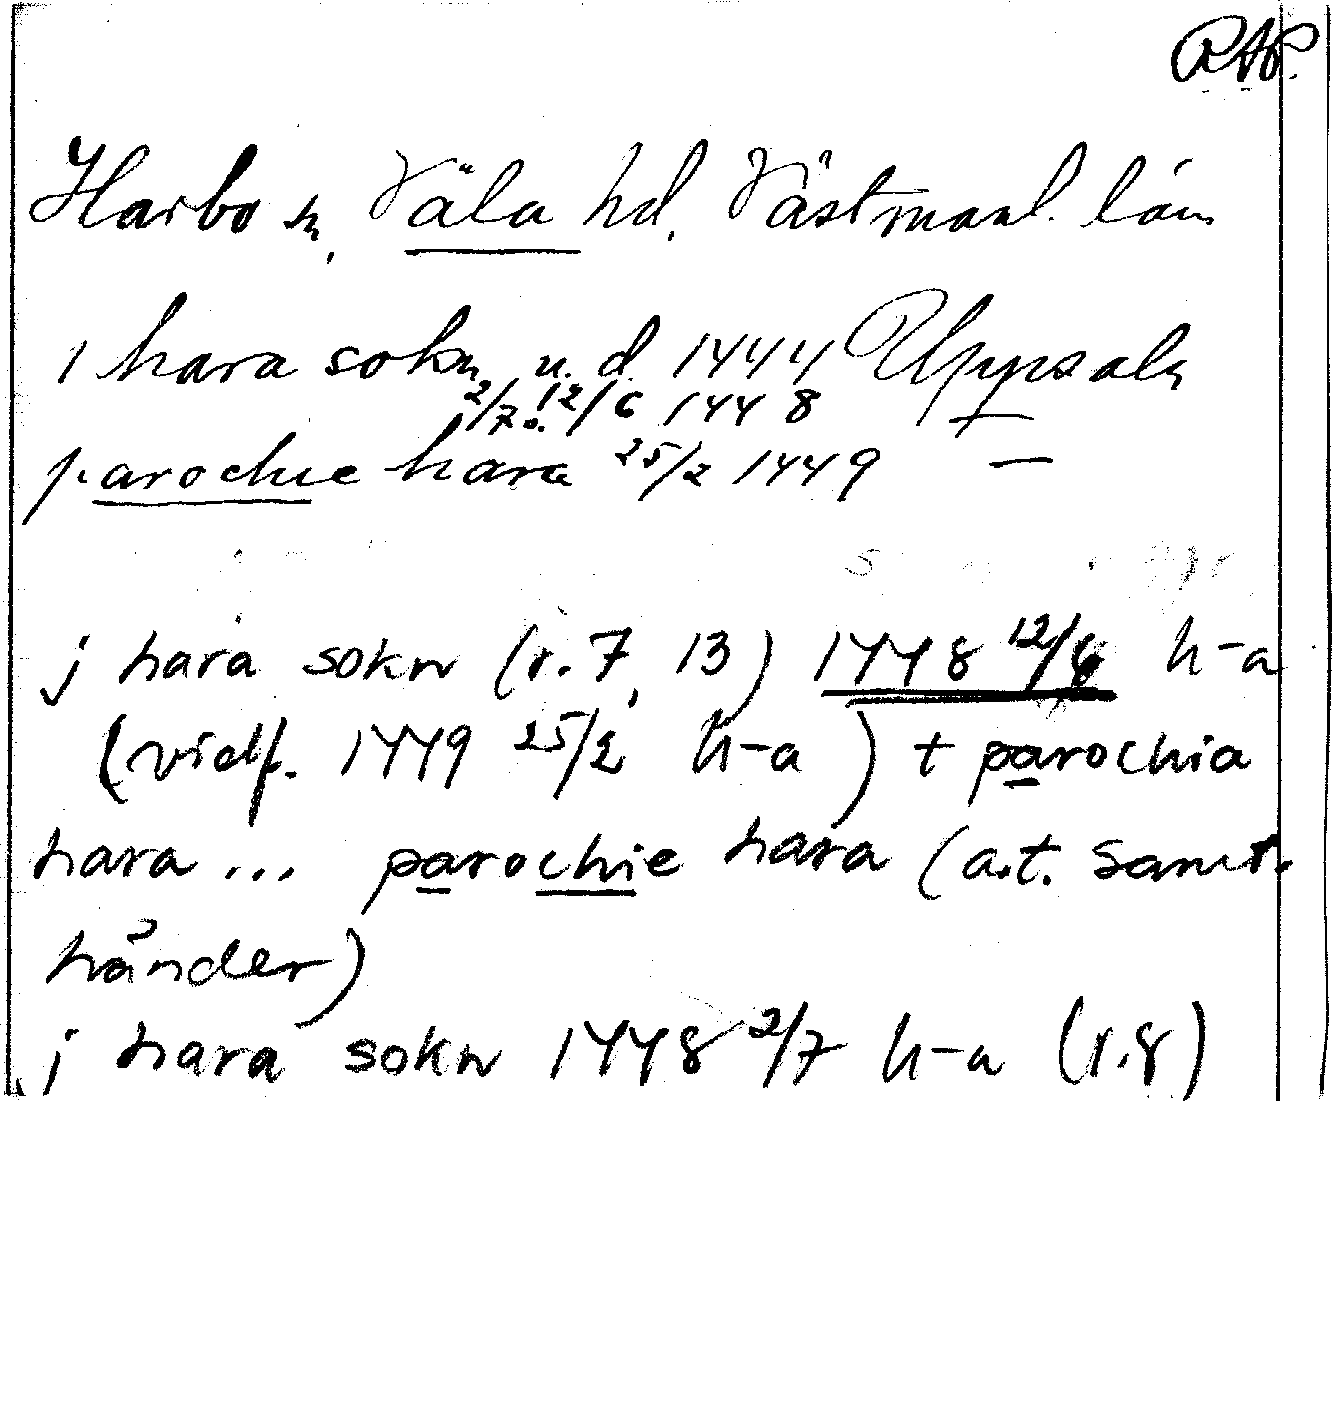 RAP.
Harbo sn, Våla hd. Västmanl. län
i hara sokn u. d. 1444 Uppsala
2/7 o. 12/6 1448 —
parochie hara 25/2 1449 —
j hara sokn (r. 7, 13) 1448 12/6 h-a
(vidf. 1449 25/2 h-a) + parochia
hara ... parochie hara (a.t. samt.
händer)
j hara sokn 1448 2/7 h-a (r. 8)